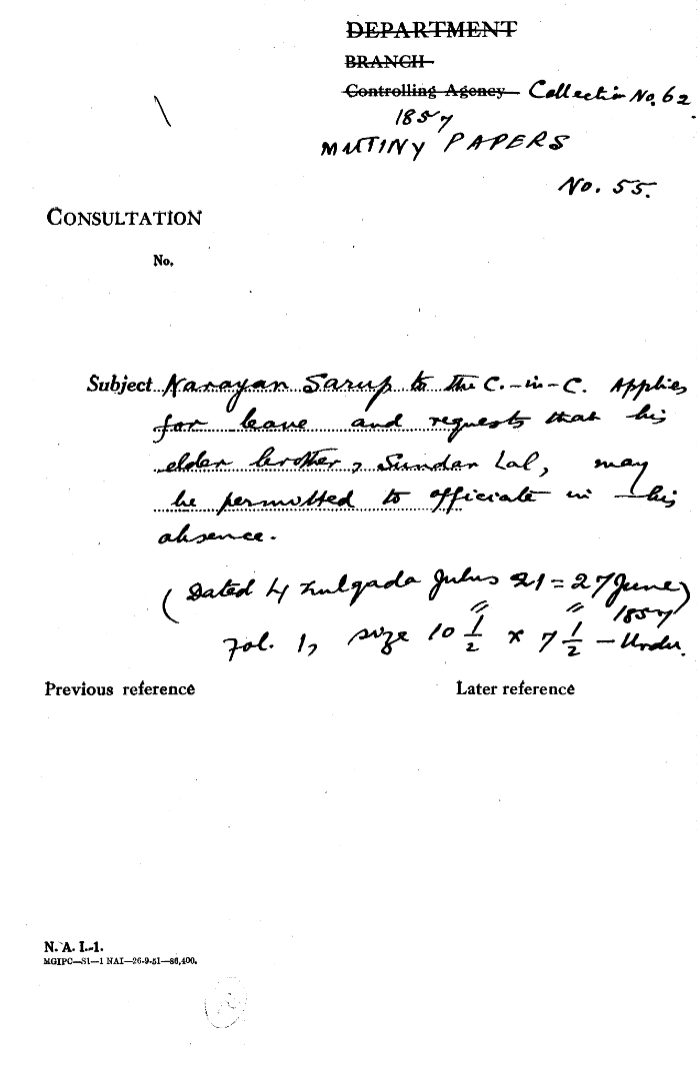 DEPARTMENT
BRANCH
Controlling Agency Collection No. 62
1857
MUTINY PAPERS
No. 55.
CONSULTATION
No.
Subject Narayan Sarup to the C.-in-C. Applies
for leave and requests that his
elder brother, Sundar Lal, may
be permitted to officiate in his
absence.
(Dated 4 Zulqada Julus 21 = 27 June
1857)
Fol. 1, size 10 1/2" x 7 1/2" - Urdu.
Previous reference Later reference
N. A. I.-1.
MGIPC—S1—1 NAI—26-9-51—86,400.